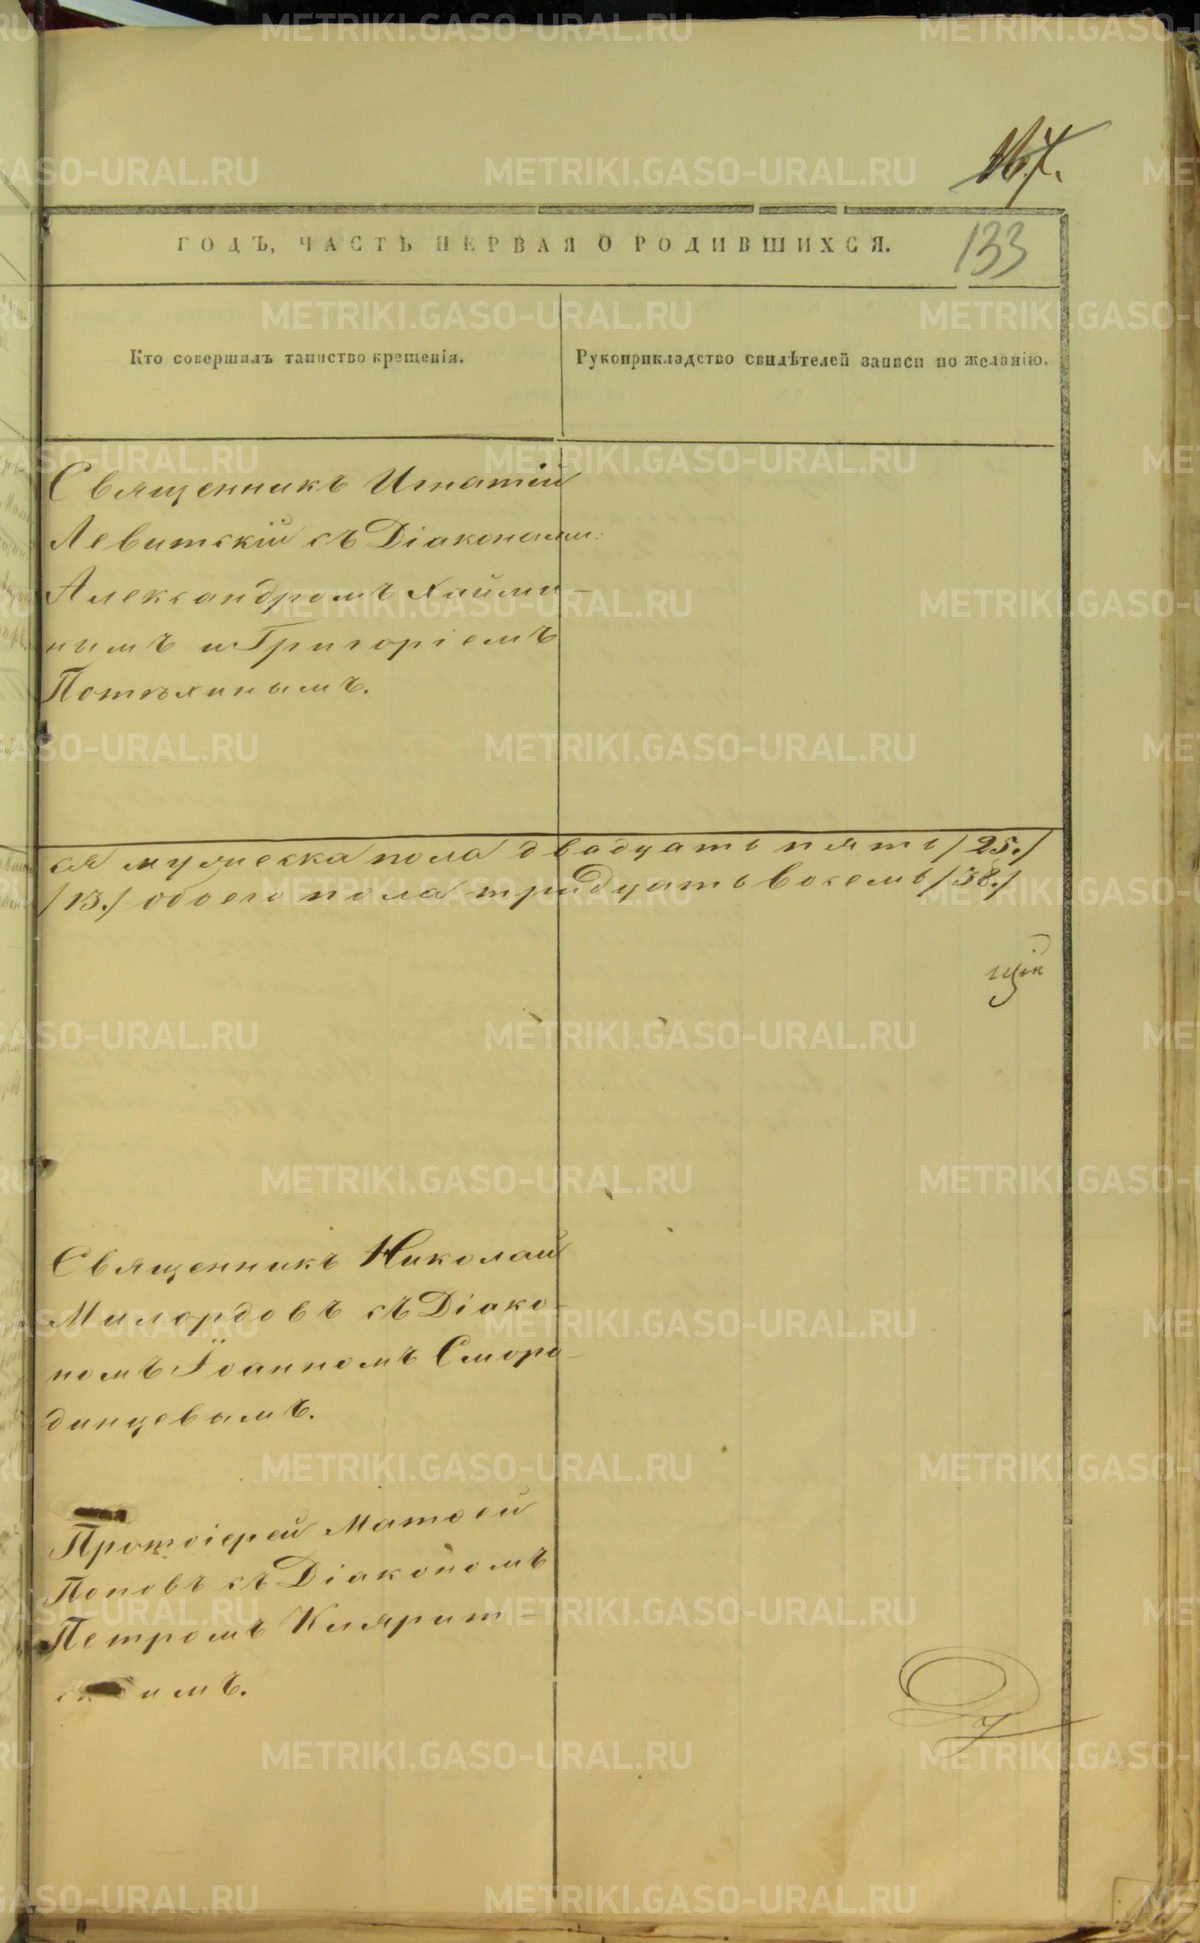 167.
ГОДЪ, ЧАСТЬ ПЕРВАЯ О РОДИВШИХСЯ.
133
Кто совершилъ таинство крещенія.
Рукоприкладство свидѣтелей записи по желанію.
Священникъ Игнатій
Левитскій съ Діаконами:
Александромъ
нымъ и Григоріемъ
Потѣхинымъ.
ся мужеска пола двадцать пять /25./
/13./ обоего пола тридцать восемь /38./
щій
Священникъ Николай
Милордовъ съ Діако-
номъ Іоанномъ Сморо-
динцевымъ.
Протоіерей Матѳей
Поповъ съ Діакономъ
Петромъ Клярит-
имъ.
METRIKI.GASO-URAL.RU